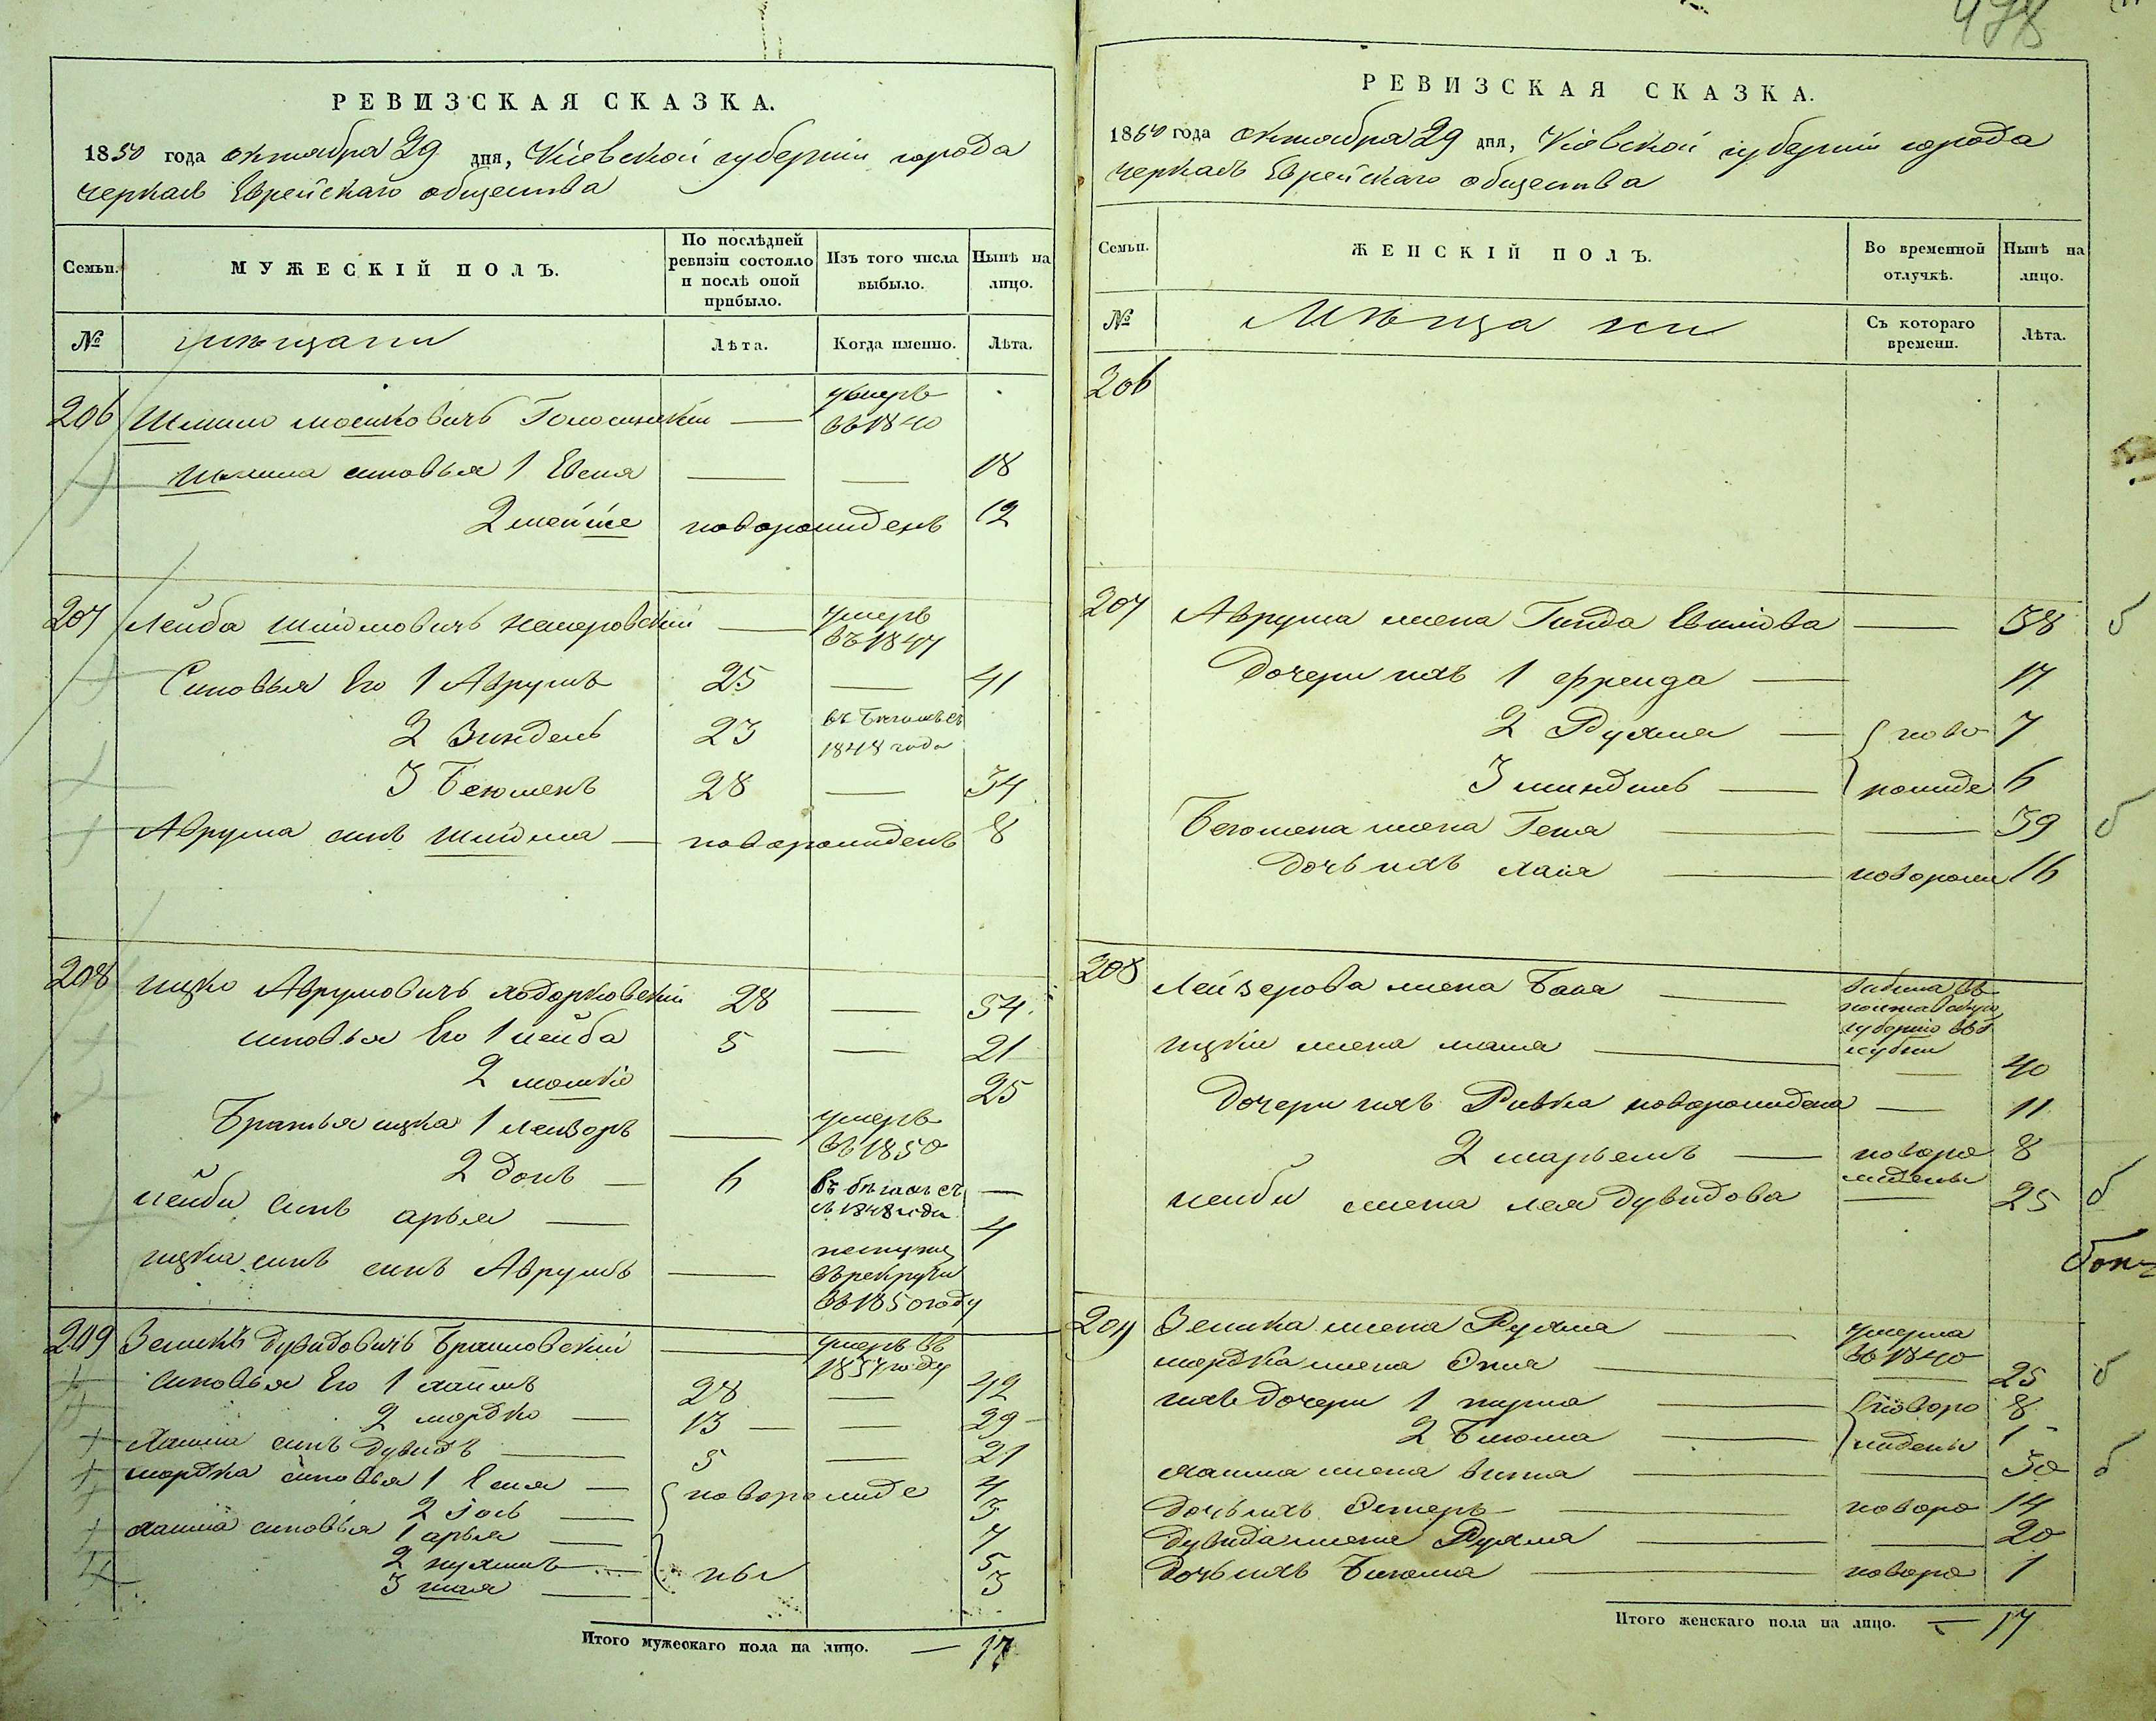 498
РЕВИЗСКАЯ СКАЗКА.
1850 года октября 29 дня, Кіевской губерніи города
черкасъ Еврейскаго общества
Семьи.
МУЖЕСКІЙ ПОЛЪ.
По послѣдней ревизіи состояло и послѣ оной прибыло.
Изъ того числа выбыло.
Нынѣ на лицо.
№
мѣщани
Лѣта.
Когда именно.
Лѣта.
206 Шлиомо мошковичъ —
умеръ въ 1840
сыновья 1 Евсія — — 18
2 новорожденъ 12
207 Лейба Шліомовичъ —
умеръ въ 1847
Сыновья Его 1 Аврумъ 25 — 41
2 Зиндель 23 въ бегахъ съ 1848 года
3 Беюменъ 28 — 34
Аврума сынъ Шліома — новорожденъ 8
208 ицко Аврумовичъ ходорковскій 28 — 34
сыновья Его 1 лейба 5 — 21
2 мошко 25
Братья ицка 1 лейзоръ — умеръ въ 1850
2 донъ — 6 въ бегахъ съ 1848 года —
лейби сынъ арья — 4
ицка сынъ сынъ Аврумъ — въ рекруты въ 1850 году
209 Зеликъ дувидовичъ Браиловскій — умеръ въ 1837 году
сыновья Его 1 хаимъ 28 — 42
2 мордко — 13 — — 29
Хаима сынъ дувидъ — 5 — 21
мордка сыновья 1 — новорожде 4
2 — 3
хаима сыновья 1 арья — 7
2 — ны 5
3 — 3
Итого мужескаго пола на лицо. — 17
РЕВИЗСКАЯ СКАЗКА.
1850 года октября 29 дня, Кіевской губерніи города
черкасъ Еврейскаго общества
Семьи.
ЖЕНСКІЙ ПОЛЪ.
Во временной отлучкѣ.
Нынѣ на лицо.
№
Мѣщанки
Съ котораго времени.
Лѣта.
206
207 Аврума жена Гинда — 38 б
дочери ихъ 1 Фрейда — 17
2 Рухма — ново 7
3 миндль — рожде 6
Беюмена жена Геня — — 39 б
дочь ихъ хаия — новорож 16
208 Лейзерова жена Баия — въ полтавскую губернію
ицки жена маша — — 40
дочери ихъ Ривка новорождена — 11
2 марьемъ — новорождены 8
лейби жена лея дувидова — 25 б
209 Зелика жена Рухма — умерла въ 1840
мордка жена — — 25 б
ихъ дочери 1 — новоро 8
2 Блюма — ждены 1
хаима жена — — 30 б
дочь ихъ Эстеръ — новоро 14
дувида жена Рухма — — 20
дочь ихъ Блюма — новоро 1
Итого женскаго пола на лицо. — 17